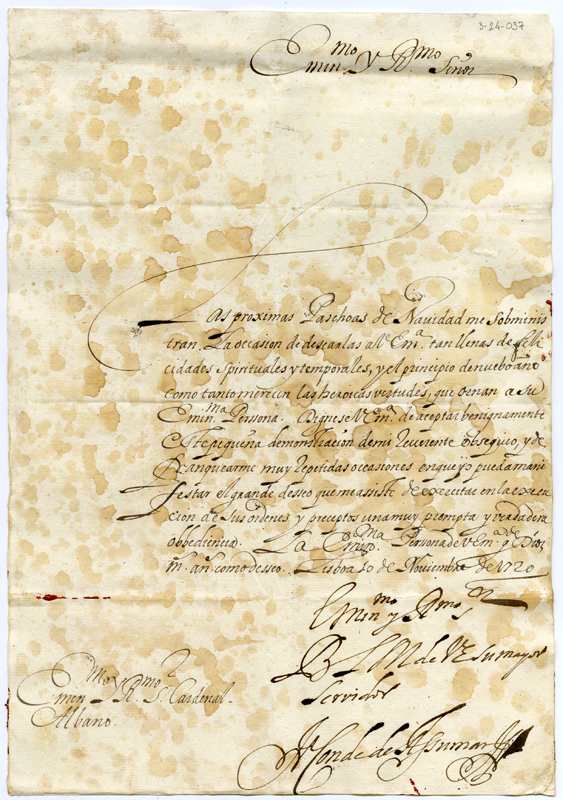 3-24-037
Emin.mo y R.mo Señor
Las proximas Paschoas de Navidad me Sobminis
tran La occasion de desearlas a V. Em.a tan llenas de feli
cidades spirituales y temporales, y el principio de nuebo año
como tanto merecen las heroicas virtudes, que ornan a Su
Emin.ma Persona. Dignese V. Em.a de aceptar benignamente
Este pequeña demonstracion de mi Reverente obsequio, y de
Franquearme muy repetidas occasiones en que yo pueda mani
festar el grande desseo que me assiste de executar en la execu
cion de sus ordenes y preceptos una muy prompta y verdadera
obbediencia. La Emin.ma Persona de V Em.a g.de Dios
m. añ. como deseo. Lisboa 20 de Noviembre de 1720
Emin.mo y R.mo S.r
B L M de V E su mayor
Servidor
Conde de Assumar
Emin.mo y R.mo S.r Cardenal
Albano.